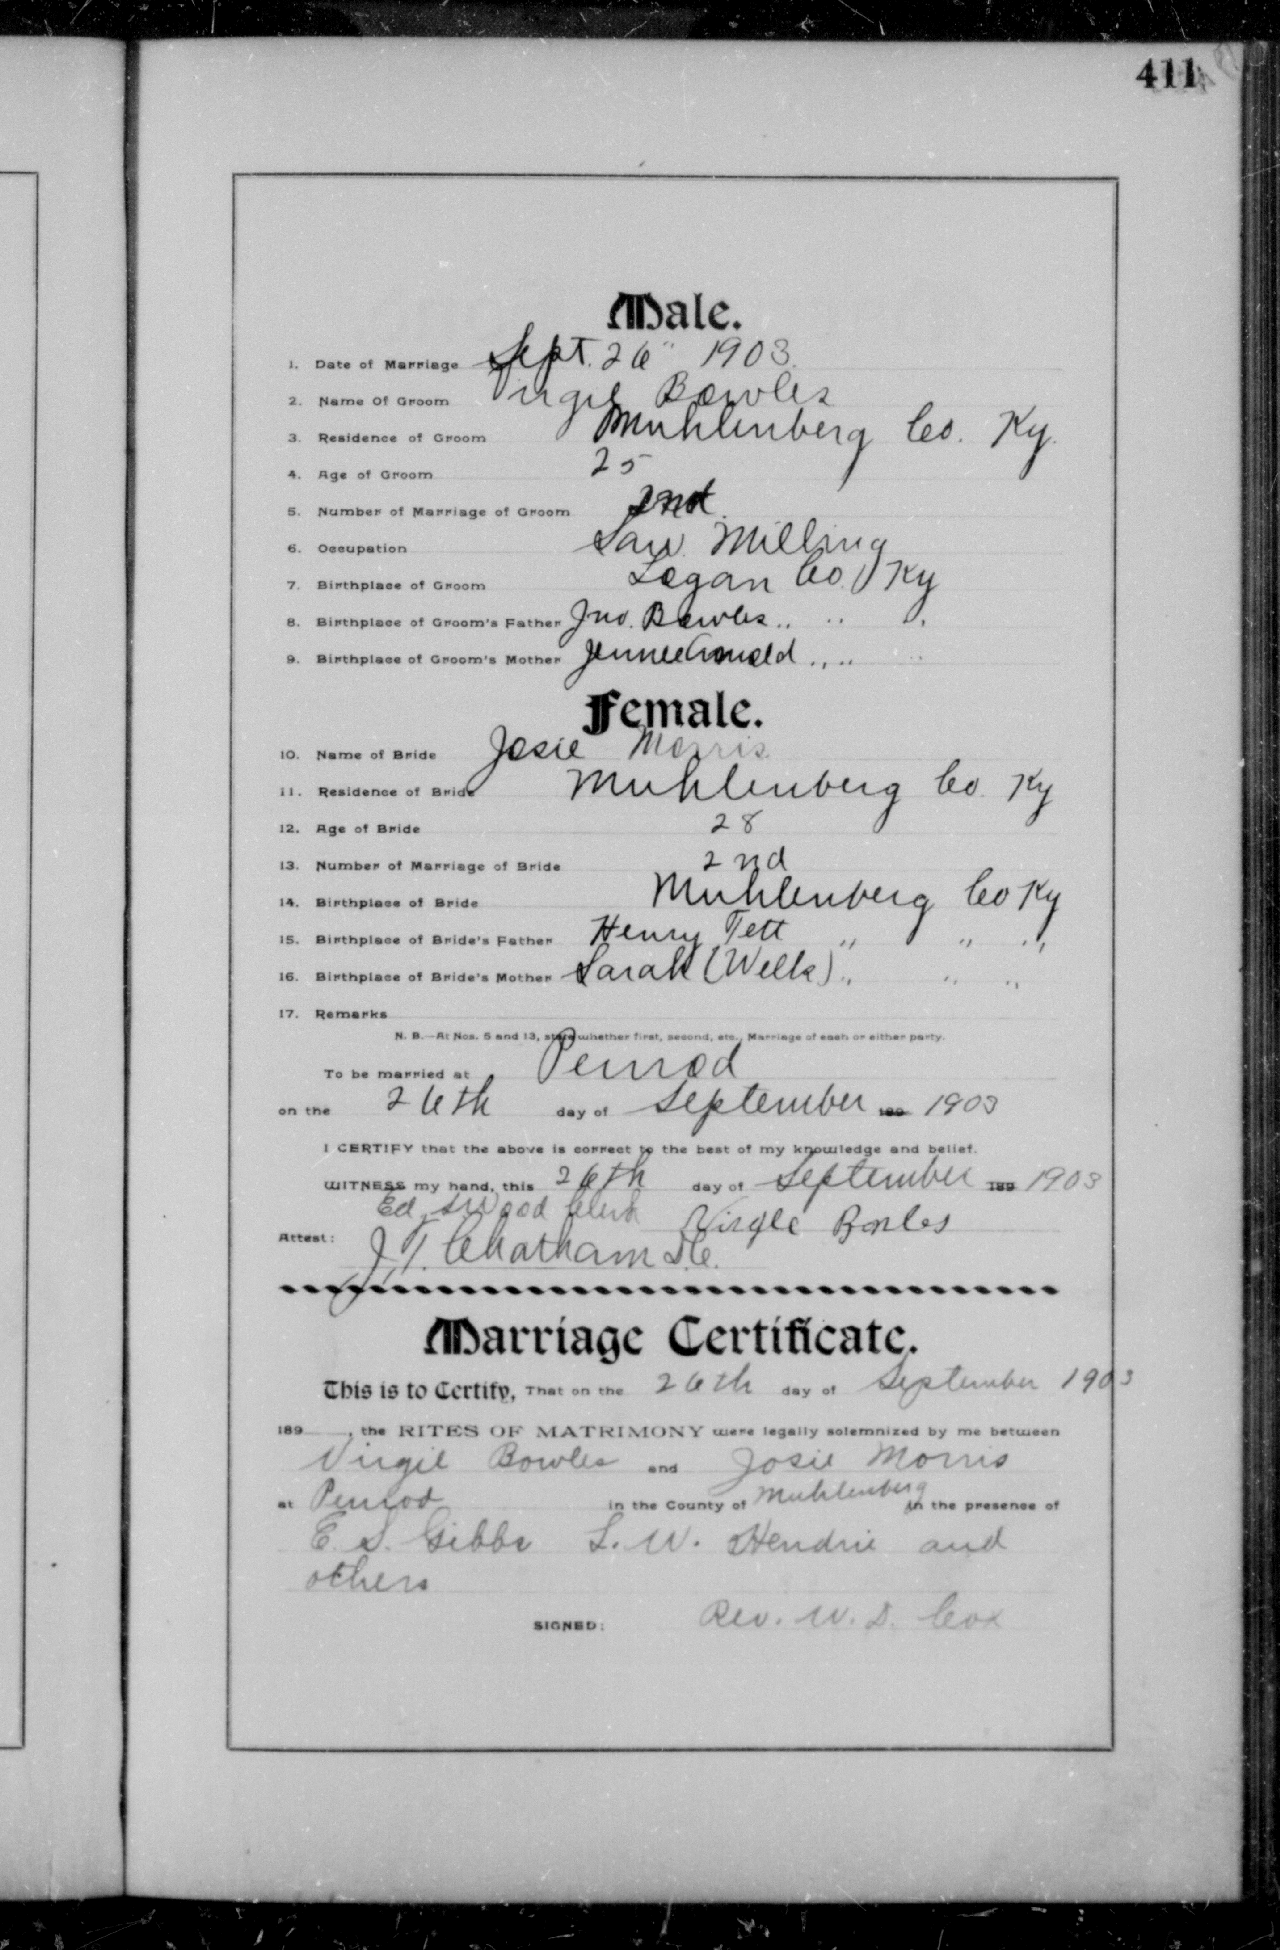 411
Male.
1. Date of Marriage Sept. 26" 1903.
2. Name Of Groom Virgil Bowles
3. Residence of Groom Muhlenberg Co. Ky.
4. Age of Groom 25
5. Number of Marriage of Groom 2nd.
6. Occupation Saw Milling
7. Birthplace of Groom Logan Co. Ky
8. Birthplace of Groom's Father Jno. Bowles " " "
9. Birthplace of Groom's Mother Jennee " " "
Female.
10. Name of Bride Josie Morris
11. Residence of Bride Muhlenberg Co. Ky
12. Age of Bride 28
13. Number of Marriage of Bride 2nd
14. Birthplace of Bride Muhlenberg Co Ky
15. Birthplace of Bride's Father Henry Tett " " "
16. Birthplace of Bride's Mother Sarah (Wells) " " "
17. Remarks
N. B.—At Nos. 5 and 13, state whether first, second, etc., Marriage of each or either party.
To be married at Penrod
on the 26th day of September 189 1903
I CERTIFY that the above is correct to the best of my knowledge and belief.
WITNESS my hand, this 26th day of September 189 1903
Ed. S. Wood Clerk Virgle Bowles
Attest: J. T. Chatham D.C.
Marriage Certificate.
This is to Certify, That on the 26th day of September 1903
189 , the RITES OF MATRIMONY were legally solemnized by me between
Virgil Bowles and Josie Morris
at Penrod in the County of Muhlenberg in the presence of
E. S. Gibbs L. W. Hendrie and
others
SIGNED: Rev. W. D. Cox